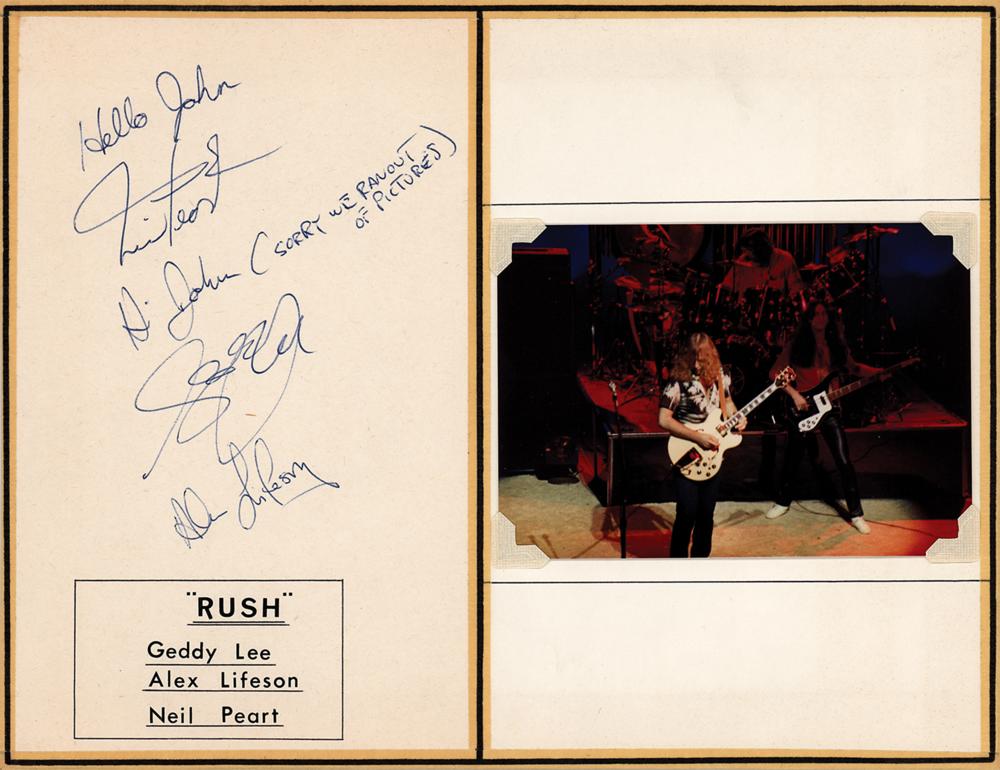 Hello John
Neil Peart
Hi John (SORRY WE RAN OUT
OF PICTURES)
Geddy Lee
Alex Lifeson
"RUSH"
Geddy Lee
Alex Lifeson
Neil Peart